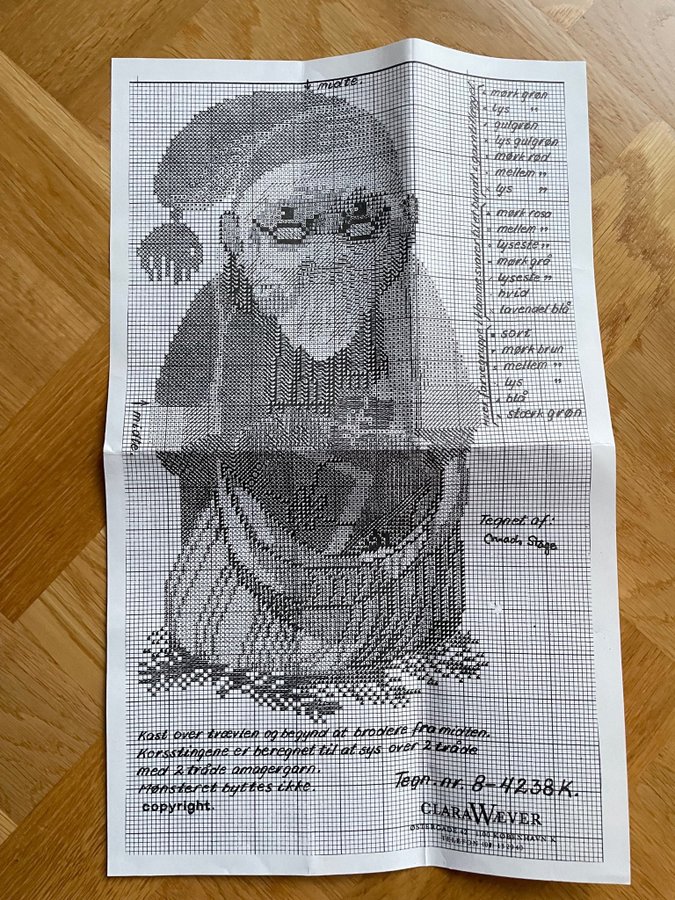 midte.
mørk grøn
lys
gulgrøn
lys gulgrøn
mørk rød
mellem "
lys "
mørk rosa
mellem "
lyseste "
mørk grå
lyseste "
hvid
lavendel blå
sort
mørk brun
mellem "
lys "
blå
stærk grøn
midte.
Tegnet af:
Kast over trævlen og begynd at brodere fra midten.
Korsstingene er beregnet til at sys over 2 tråde
med 2 tråde amagergarn.
Mønsteret byttes ikke.
copyright.
Tegn. nr. 8-4238K.
CLARA WÆVER
ØSTERGADE 42 KØBENHAVN K
TELEFON